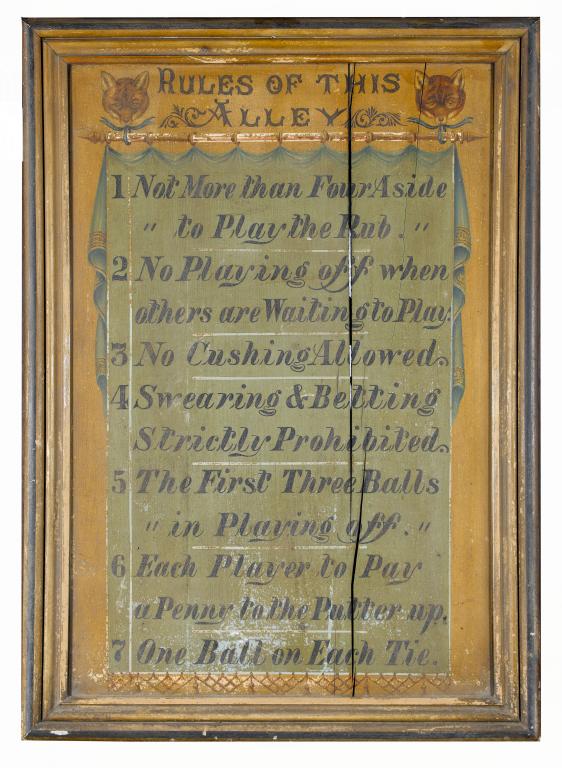 RULES OF THIS
ALLEY
1 Not More than Four Aside
" to Play the Rub. "
2 No Playing off when
others are Waiting to Play.
3 No Cushing Allowed.
4 Swearing & Betting
Strictly Prohibited.
5 The First Three Balls
" in Playing off. "
6 Each Player to Pay
a Penny to the Putter up.
7 One Ball on Each Tie.